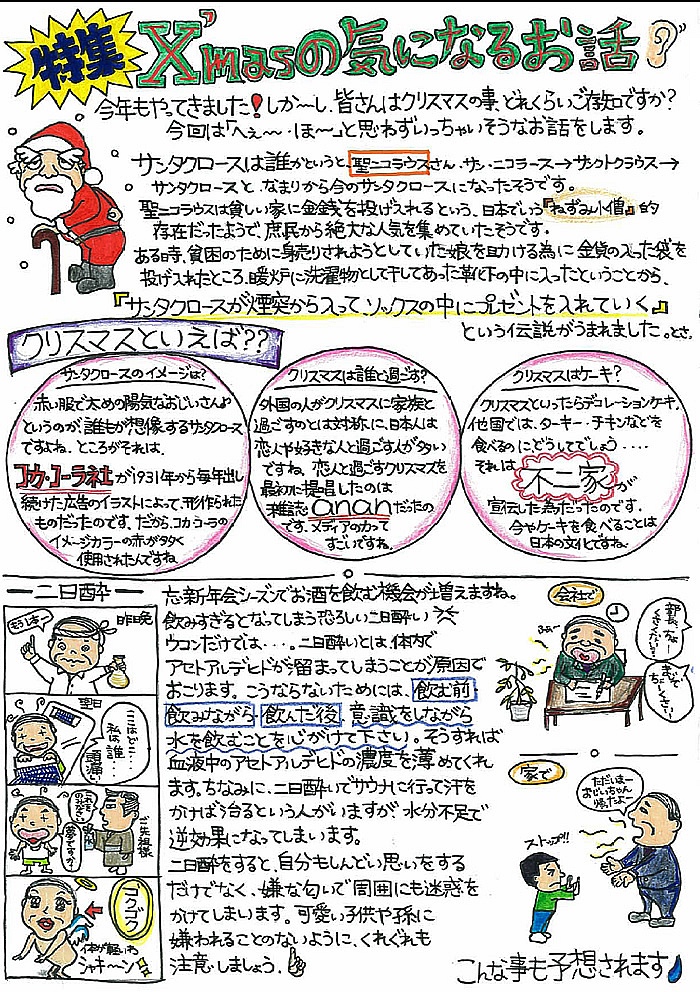 特集
X'masの気になるお話
今年もやってきました!しか〜し、皆さんはクリスマスの事、どれくらいご存知ですか?
今回は「へぇ〜・ほ〜」と思わずいっちゃいそうなお話をします。
サンタクロースは誰かというと、聖ニコラウスさん。サン・ニコラース→サンクトクラウス→
サンタクロースと、なまりから今のサンタクロースになったそうです。
聖ニコラウスは貧しい家に金銭を投げ入れるという、日本でいう『ねずみ小僧』的
存在だったようで、庶民から絶大な人気を集めていたそうです。
ある時、貧困のために身売りされようとしていた娘を助ける為に金貨の入った袋を
投げ入れたところ、暖炉に洗濯物として干してあった靴下の中に入ったということから、
『サンタクロースが煙突から入って、ソックスの中にプレゼントを入れていく』
という伝説がうまれました。とさ。
クリスマスといえば??
サンタクロースのイメージは?
赤い服で太めの陽気なおじいさん♪
というのが、誰もが想像するサンタクロース
ですよね。ところがそれは、
コカ・コーラ社が1931年から毎年出し
続けた広告のイラストによって、形作られた
ものだったのです。だから、コカコーラの
イメージカラーの赤が多く
使用されたんですね
クリスマスは誰と過ごす?
外国の人がクリスマスに家族と
過ごすのとは対称に、日本人は
恋人や好きな人と過ごす人が多い
ですね。恋人と過ごすクリスマスを
最初に提唱したのは
雑誌ananだったの
です。メディアの力って
すごいですね。
クリスマスはケーキ?
クリスマスといったらデコレーションケーキ。
他国では、ターキー・チキンなどを
食べるのにどうしてでしょう・・・・
それは不二家が
宣伝した為だったのです。
今やケーキを食べることは
日本の文化ですね。
二日酔
もう1本!
昨日晩
翌日
ここはどこ…
私は誰…
頭痛っ…
これをのみなさい
ご先祖様
夢ですか?
ゴクゴク
体が軽いわ
シャキーン
忘新年会シーズンでお酒を飲む機会が増えますね。
飲みすぎるとなってしまう恐ろしい二日酔い
ウコンだけでは・・・。二日酔いとは、体内で
アセトアルデヒドが溜まってしまうことが原因で
おこります。こうならないためには、飲む前
飲みながら 飲んだ後、意識をしながら
水を飲むことを心がけて下さい。そうすれば
血液中のアセトアルデヒドの濃度を薄めてくれ
ます。ちなみに、二日酔いでサウナに行って汗を
かけば治るという人がいますが、水分不足で
逆効果になってしまいます。
二日酔をすると、自分もしんどい思いをする
だけでなく、嫌な匂いで周囲にも迷惑を
かけてしまいます。可愛い子供や孫に
嫌われることのないように、くれぐれも
注意しましょう。
会社で
ふぁ〜
部長、なんか
くさくない?
家で
ただいまー
おじいちゃん
帰ったよー
ストップ!!
こんな事も予想されます